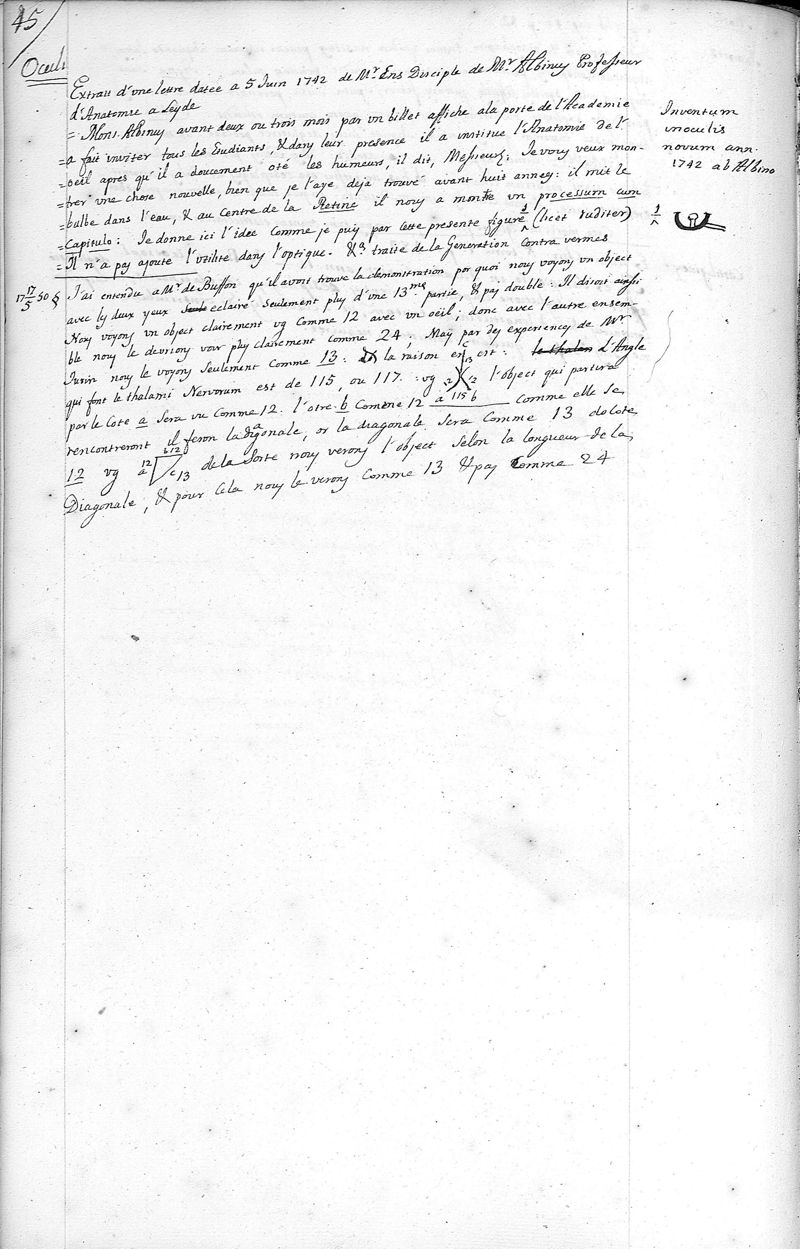 45
Oculi
Extrait d'une lettre datée a 5 Juin 1742 de Mr. Ens Disciple de Mr. Albinus Professeur
d'Anatomie a Leyde
= Mons. Albinus avant deux ou trois mois par un billet affiche a la porte de l'Academie
= a fait inviter tous les Etudiants, & dans leur presence il a institue l'Anatomie de l'
= oeil apres qu'il a doucement oté les humeurs, il dit, Messieurs: Je vous veux mon-
= trer une chose nouvelle, bien que je l'aye deja trouvé avant huit annes: il mit le
= bulbe dans l'eau, & au Centre de la Retine il nous a montre un processum cum
= Capitulo: Je donne ici l'idee comme je puis par cette presente figure 1 (licet ruditer)
= Il n'a pas ajoute l'utilité dans l'optique. & traite de la Generation Contra vermes
Inventum
in oculis
novum ann.
1742 ab Albino
1
17 17/5 50 § J'ai entendu a Mr. de Buffon qu'il avoit trouve la demonstration por quoi nous voyons un object
avec les deux yeux Seule eclairé seulement plus d'une 13me partie, & pas double: Il disoit ainsi
Nous voyons un object clairement vg Comme 12 avec un oeil; donc avec l'autre ensem-
ble nous le devrions voir plus clairement comme 24; Mais par des experiences de Mr.
Jurin nous le voyons seulement comme 13: la raison en est: le thalam d'Angle
qui font le thalami Nervorum est de 115, ou 117. : vg 12 c 13 12 l'object qui partira
par le Coté a Sera vu Comme 12. l'otre b Comme 12 a 115 b comme elle se
rencontreront il feron la diagonale, or la diagonale sera Comme 13 do Cote
12 vg 12 a b12 c 13 de la sorte nous verons l'object selon la longueur de la
Diagonale, & pour Cela nous le verons Comme 13 & pas Comme 24